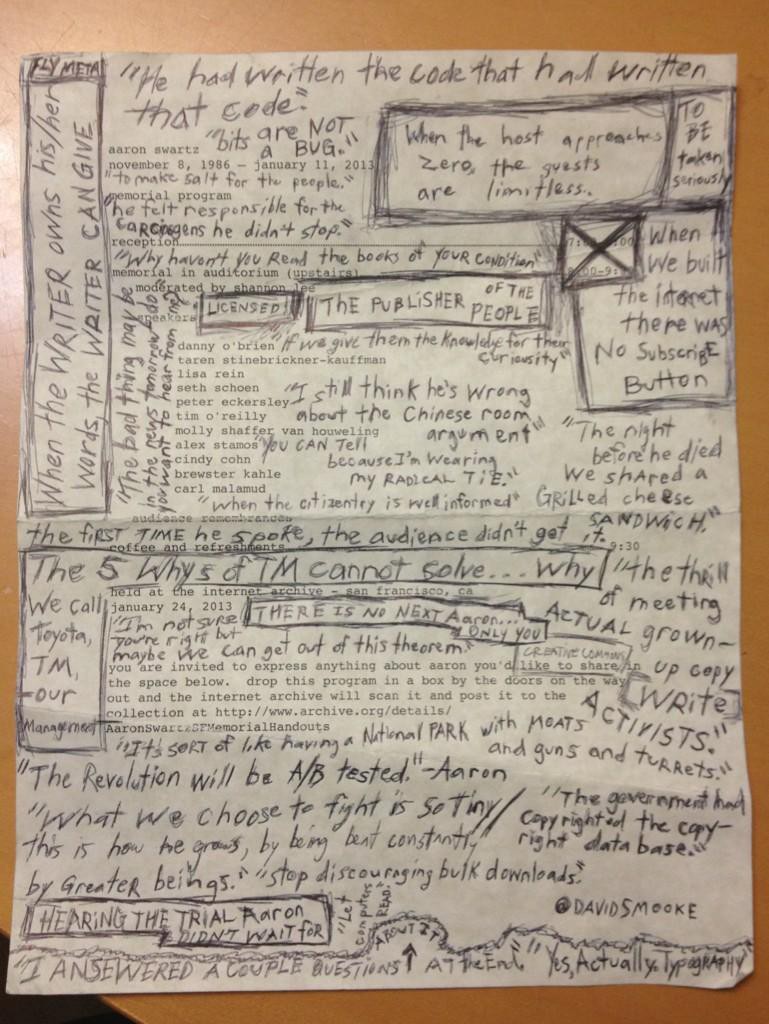 FLY META
"He had written the code that had written
that code."
"bits are NOT
a BUG."
When the host approaches
zero, the guests
are limitless.
TO
BE
taken
seriously
When the WRITER owns his/her
words, the WRITER CAN GIVE
aaron swartz
november 8, 1986 – january 11, 2013
"to make salt for the people."
memorial program
he felt responsible for the
carcinogens he didn't stop."
reception
"Why haven't you Read the books of YOUR CONDITION"
memorial in auditorium (upstairs)
moderated by shannon lee
speakers
LICENSED
THE PUBLISHER OF THE
PEOPLE
When
We built
the internet
there WAS
No Subscribe
Button
"The bad thing may be
in the news tomorrow, do
you want to hear from me?
danny o'brien
"if we give them the knowledge for their
curiousity"
taren stinebrickner-kauffman
lisa rein
seth schoen
peter eckersley
tim o'reilly
molly shaffer van houweling
alex stamos
cindy cohn
brewster kahle
carl malamud
"I still think he's wrong
about the Chinese room
argument"
"YOU CAN Tell
because I'm wearing
my RADICAL TIE."
"when the citizentry is well informed"
"The night
before he died
We shared a
Grilled cheese
SANDWICH."
audience remembrances
the FIRST TIME he spoke, the audience didn't get it.
coffee and refreshments
9:30
The 5 Whys of TM cannot solve... why
We call
Toyota,
TM,
-our
Management
held at the internet archive – san francisco, ca
january 24, 2013
THERE IS NO NEXT Aaron...
ONLY YOU
"I'm not sure
you're right but
maybe we can get out of this theorem."
CREATIVE COMMONS
"the thrill
of meeting
ACTUAL grown-
up copy
WRITE
ACTIVISTS."
you are invited to express anything about aaron you'd like to share in
the space below. drop this program in a box by the doors on the way
out and the internet archive will scan it and post it to the
collection at http://www.archive.org/details/
AaronSwartzSFMemorialHandouts
"It's SORT of like having a National PARK with MOATS
and guns and turrets."
"The Revolution will be A/B tested." -Aaron
"What we choose to fight is so tiny/
this is how he grows, by being beat constantly
by Greater beings."
"The government had
copyrighted the copy-
right data base."
"stop discouraging bulk downloads."
HEARING THE TRIAL Aaron
DIDN'T WAIT for
"Let
computers
READ."
@DAVIDSMOOKE
ABOUT IT
"I ANSEWERED A COUPLE QUESTIONS ↑ AT the End."
"Yes, Actually, Typography"